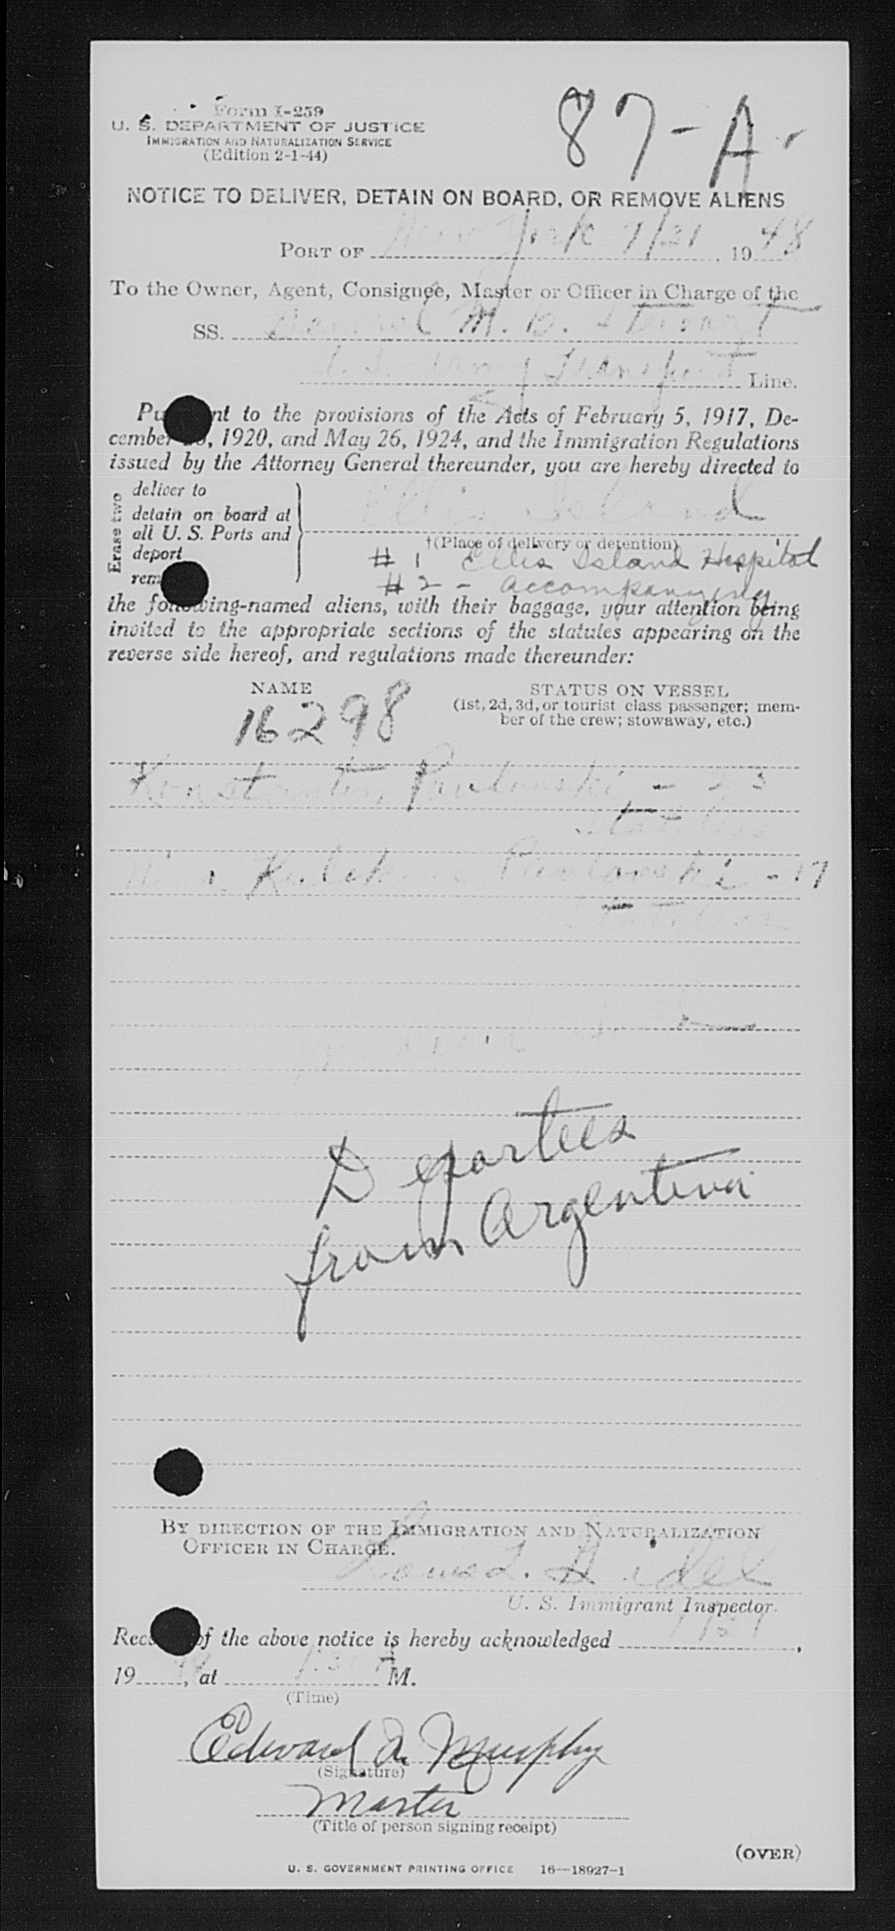 Form I-259
U. S. DEPARTMENT OF JUSTICE
IMMIGRATION AND NATURALIZATION SERVICE
(Edition 2-1-44)
87-A-
NOTICE TO DELIVER, DETAIN ON BOARD, OR REMOVE ALIENS
PORT OF New York 7/21, 1948
To the Owner, Agent, Consignee, Master or Officer in Charge of the
SS. M. B. Stewart
Transport Line.
Pu nt to the provisions of the Acts of February 5, 1917, De-
cember , 1920, and May 26, 1924, and the Immigration Regulations
issued by the Attorney General thereunder, you are hereby directed to
Erase two
deliver to
detain on board at
all U. S. Ports and
deport
rem
Ellis Island
†(Place of delivery or detention)
# 1 Ellis Island Hospital
# 2 - accompanying
the following-named aliens, with their baggage, your attention being
invited to the appropriate sections of the statutes appearing on the
reverse side hereof, and regulations made thereunder:
NAME
STATUS ON VESSEL
(1st, 2d, 3d, or tourist class passenger; mem-
ber of the crew; stowaway, etc.)
16298
Konstantin, - 23
Stateless
- 17
Deportees
from Argentina
BY DIRECTION OF THE IMMIGRATION AND NATURALIZATION
OFFICER IN CHARGE.
Louis
U. S. Immigrant Inspector.
Rec of the above notice is hereby acknowledged ,
19 , at M.
(Time)
Edward A. Murphy
(Signature)
Master
(Title of person signing receipt)
(OVER)
U. S. GOVERNMENT PRINTING OFFICE 16—18927-1